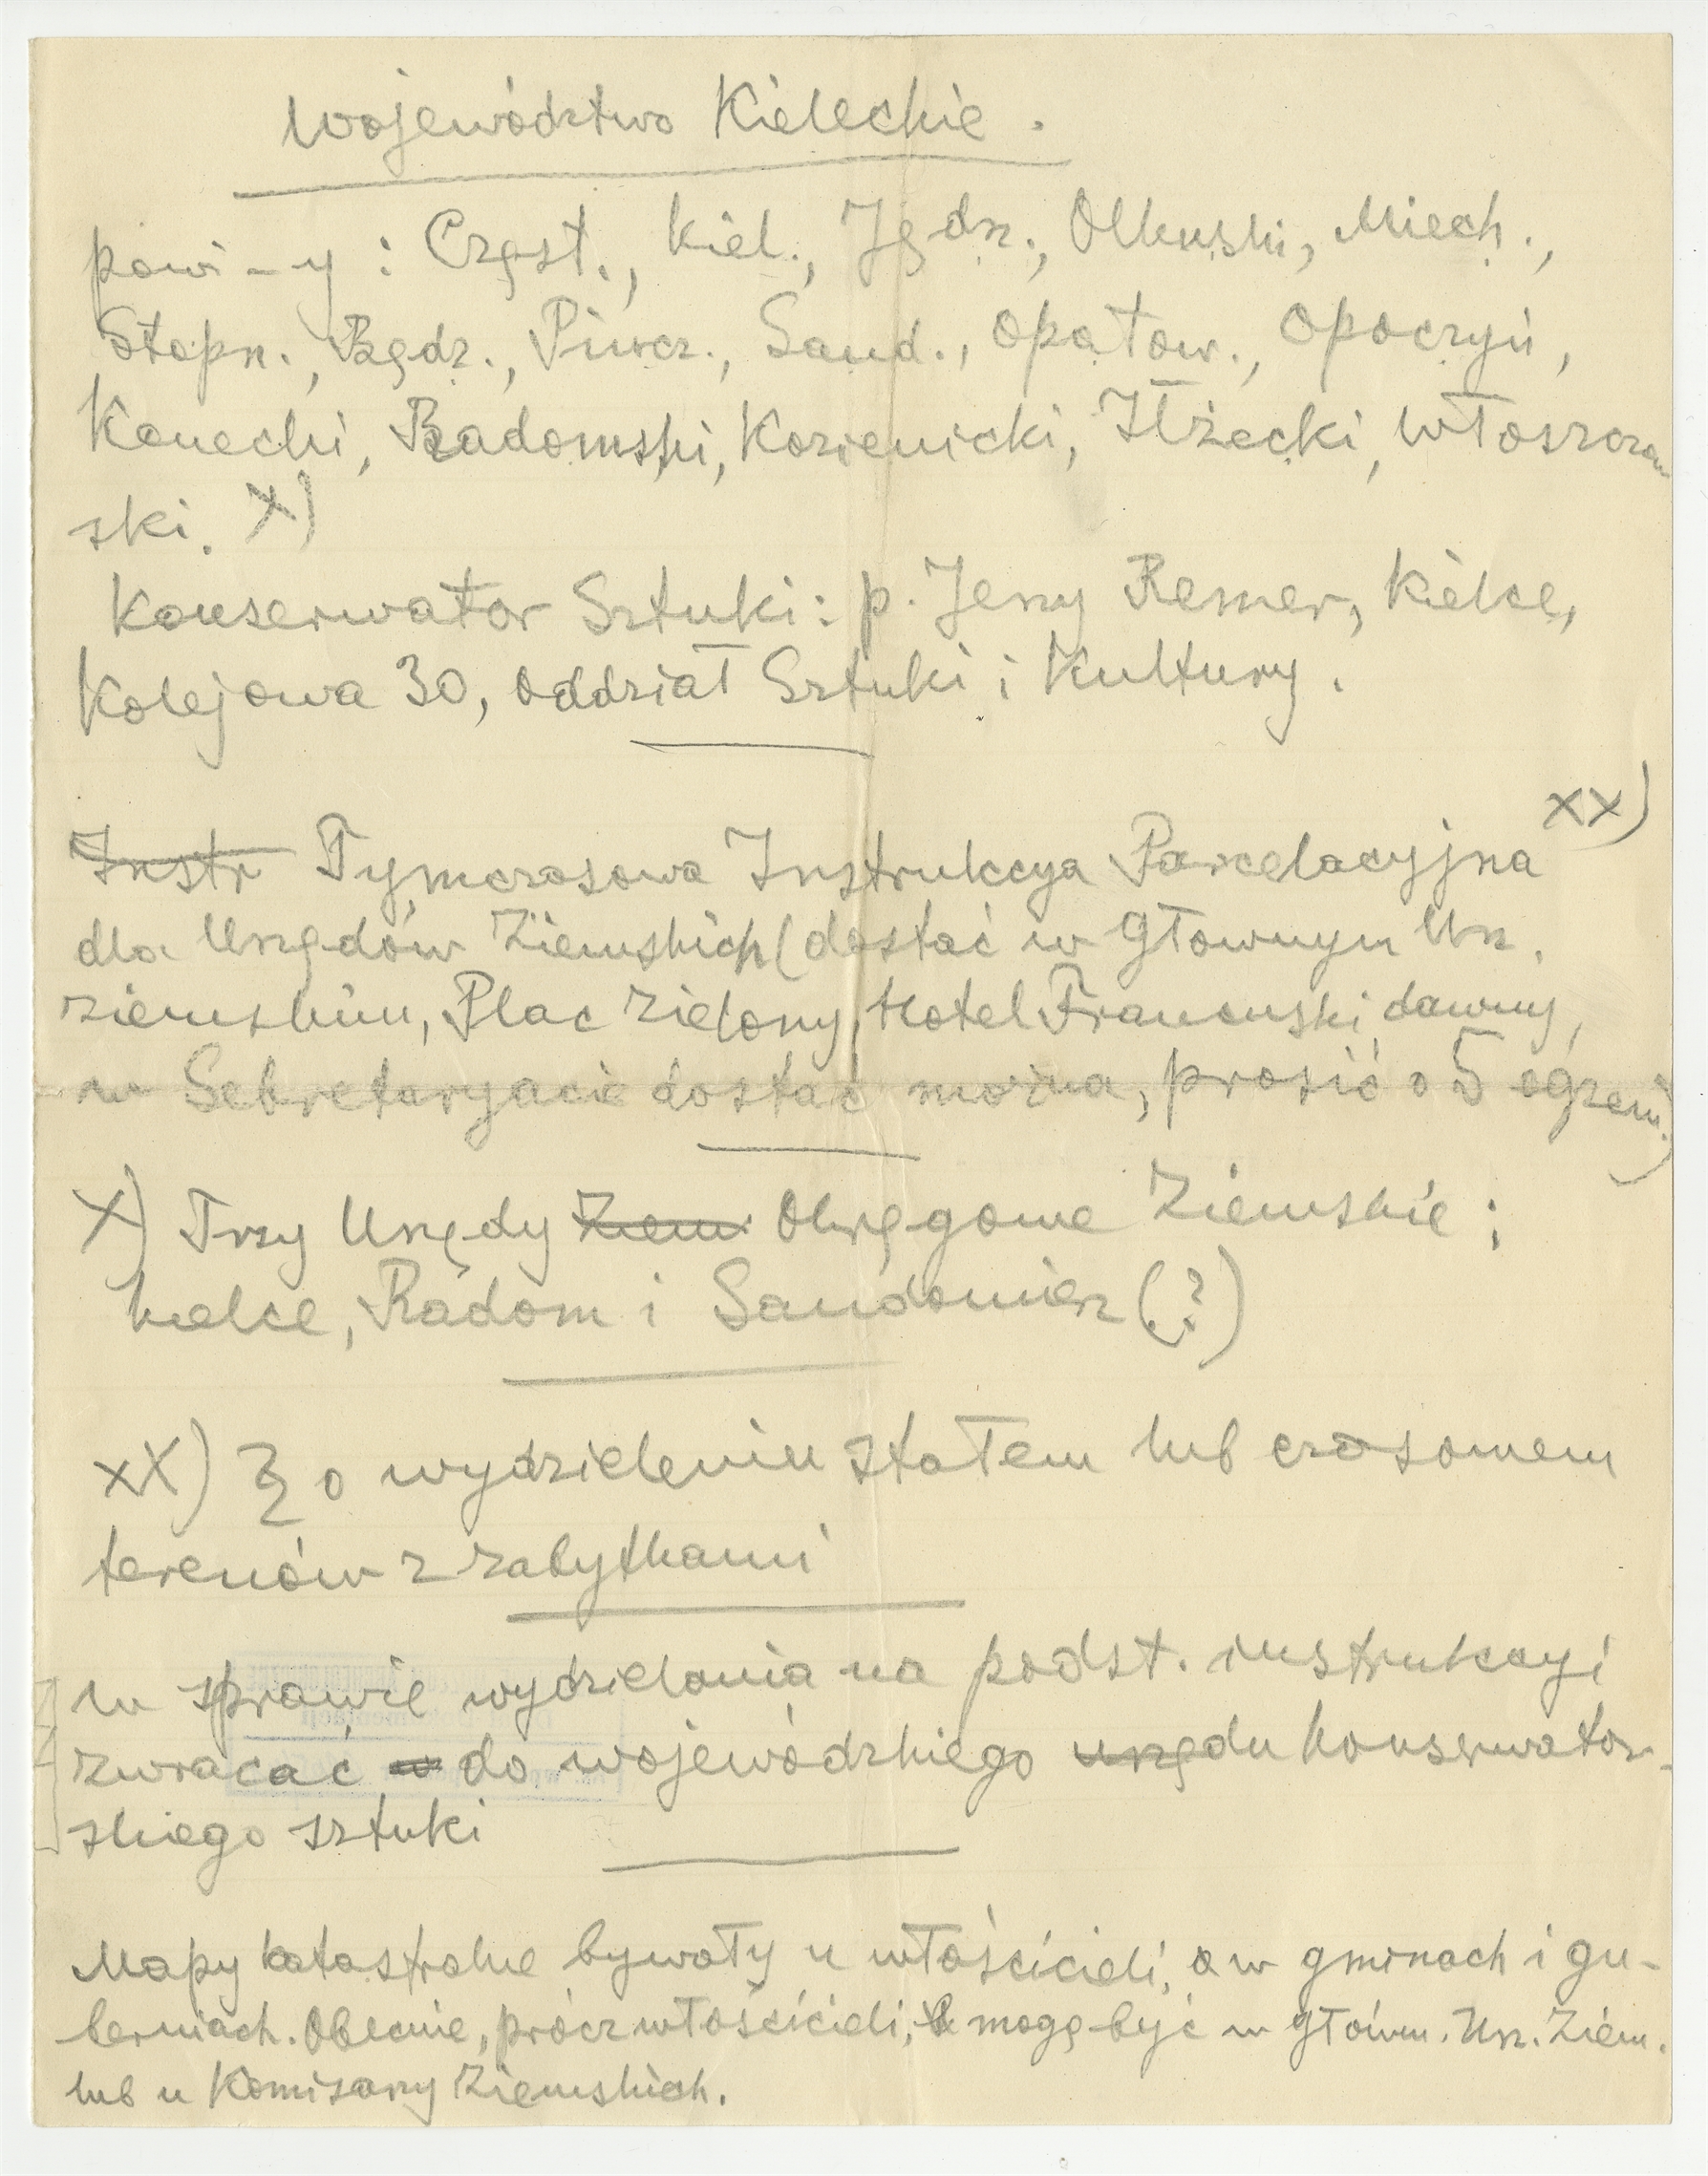 Województwo Kieleckie.
powi-y: Częst., Kiel., Jędrz., Olkuski, Miech.,
Stopn., Będz., Pińcz., Sand., Opatow., Opoczyń,
Konecki, Radomski, Kozienicki, Iłżecki, Włoszczow
ski. X)
Konserwator Sztuki: p. Jerzy Remer, Kielce,
Kolejowa 30, Oddział Sztuki i Kultury.
XX)
Instr Tymczasowa Instrukcya Parcelacyjna
dla Urzędów Ziemskich (dostać w Głownym Urz.
ziemskim, Plac Zielony, Hotel Francuski dawny,
w Sekretaryacie dostać można, prosić o 5 egzem.)
X) Trzy Urzędy Ziem Okręgowe Ziemskie:
Kielce, Radom i Sandomierz (?)
XX) § o wydzieleniu stałem lub czasowem
terenów z zabytkami
w sprawie wydzielania na podst. instrukcyi
zwracać o do wojewódzkiego urzędu konserwator-
skiego sztuki
Mapy katastralne bywały u właścicieli, a w gminach i gu-
berniach. Obecnie, prócz właścicieli, mogą być w głown. Urz. Ziem.
lub u Komisarzy Ziemskich.